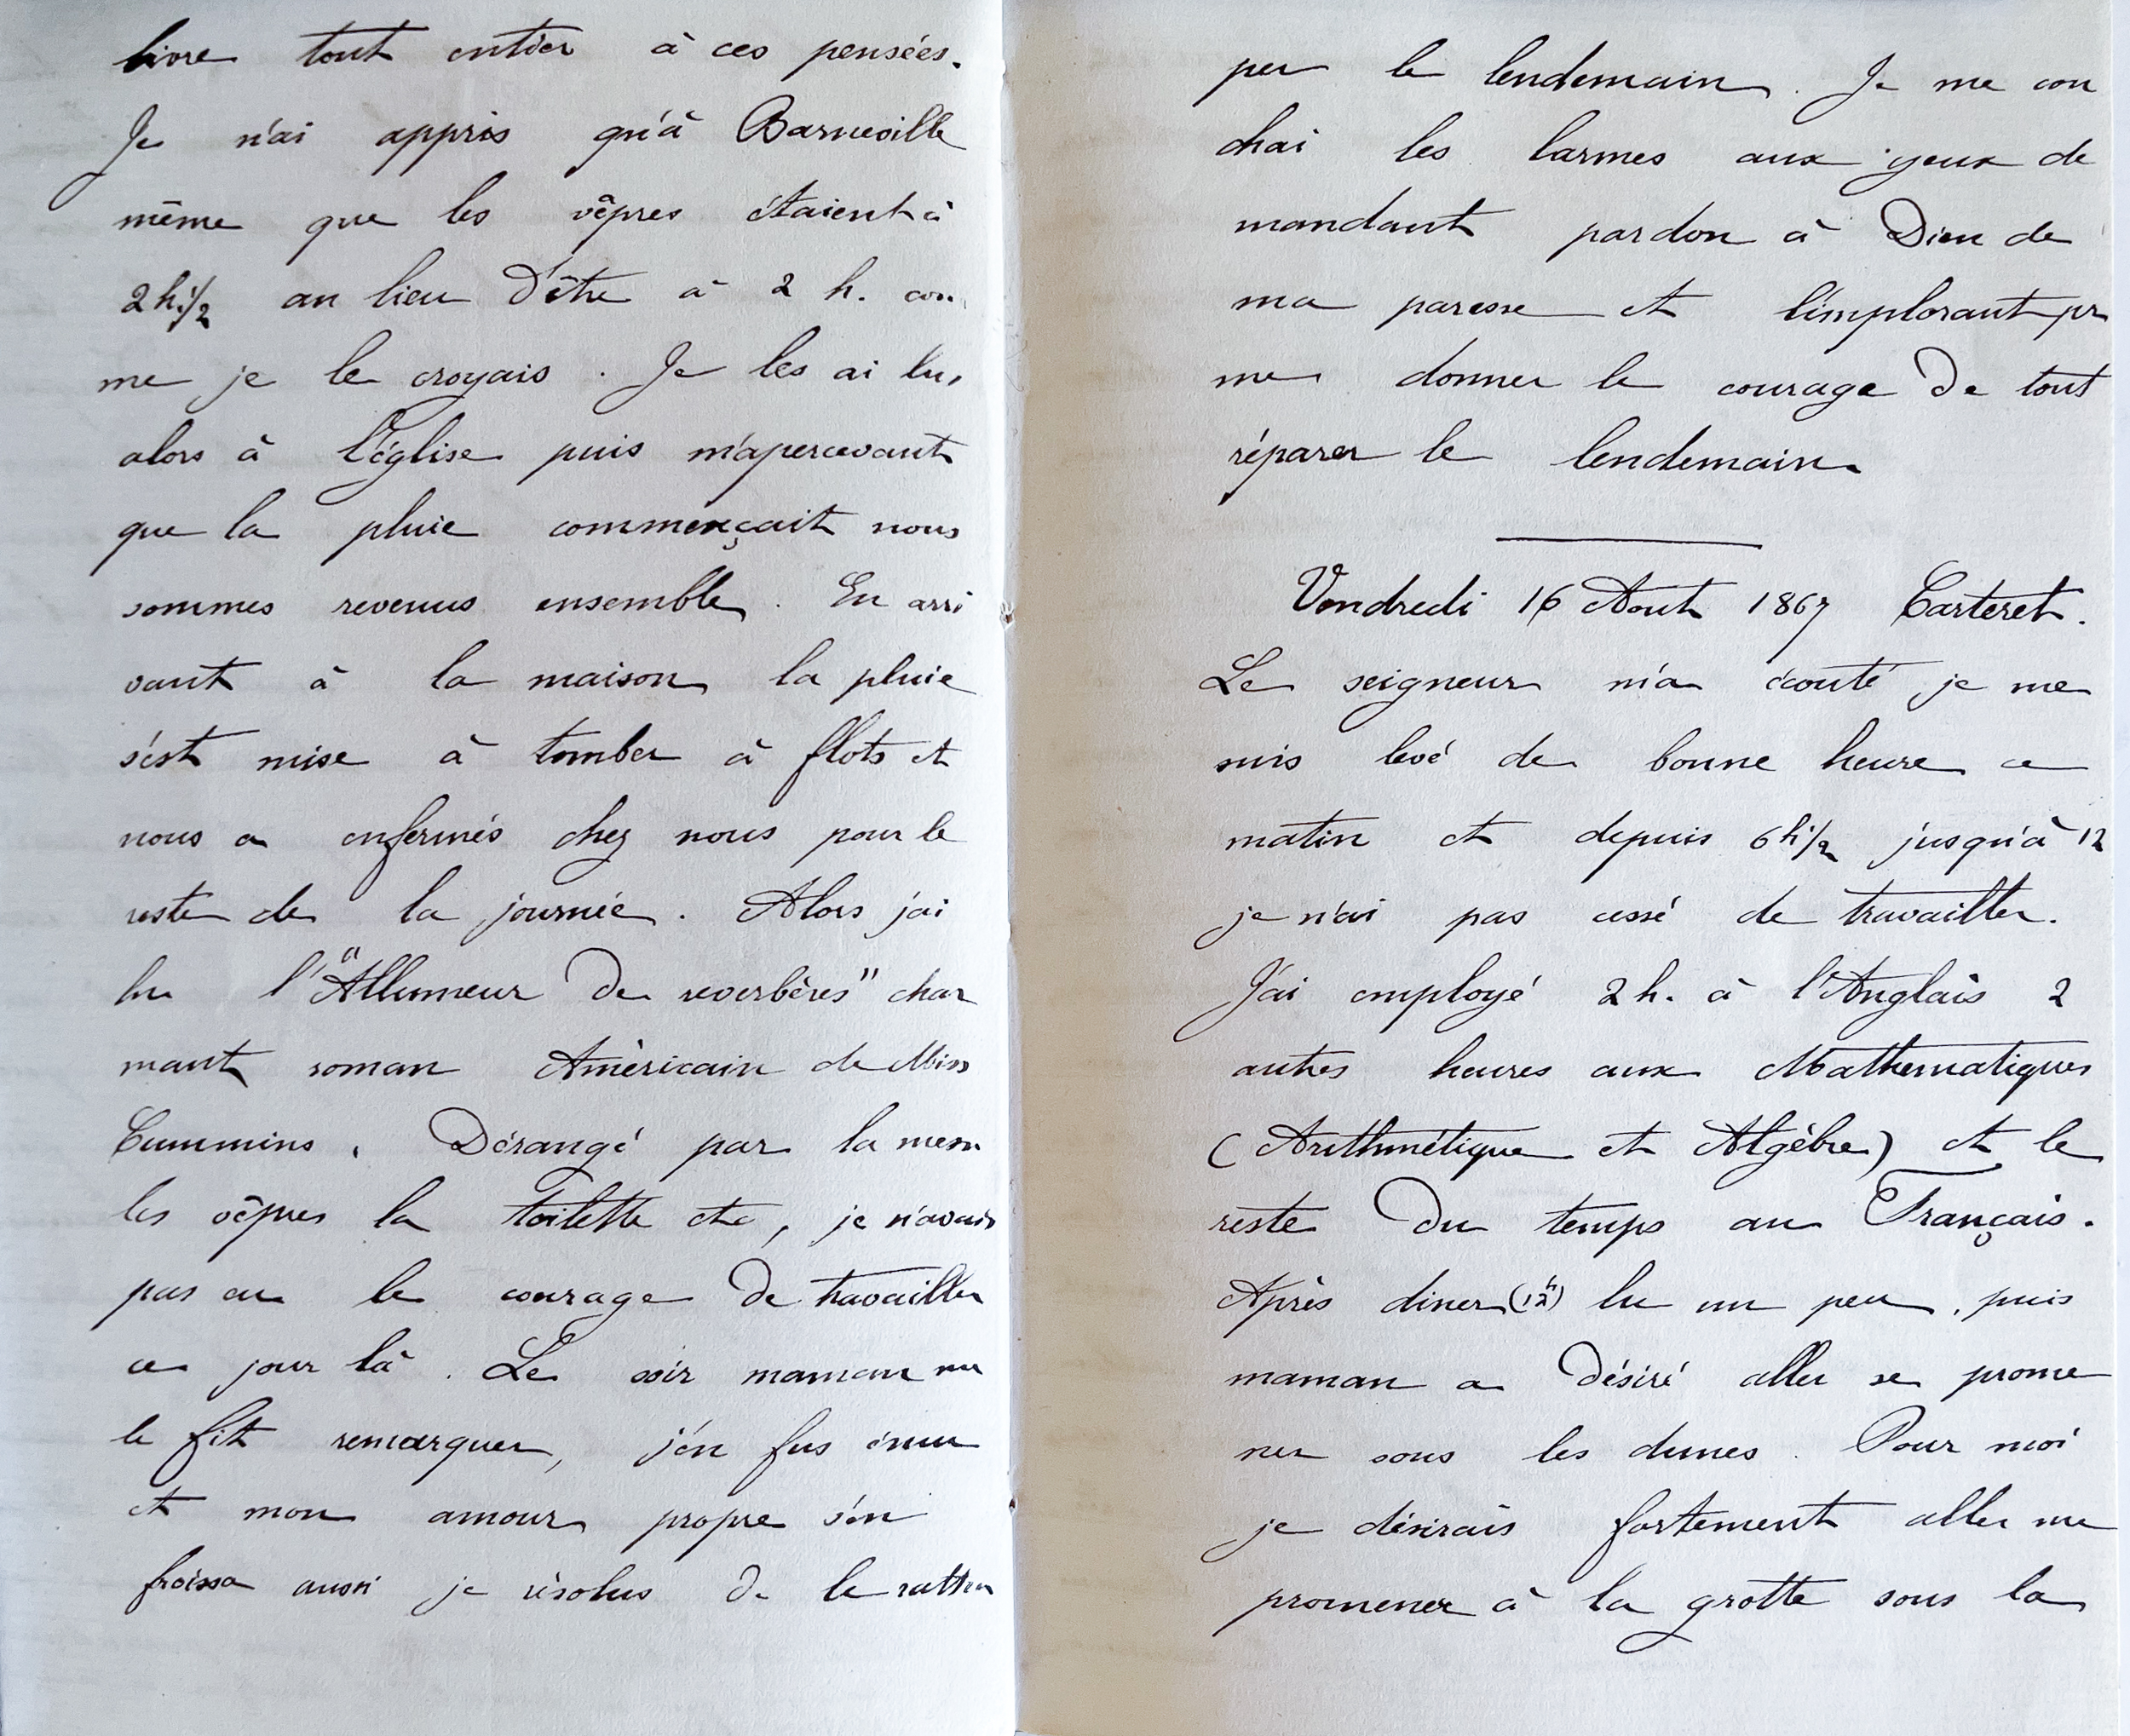 livre tout entier à ces pensées.
Je n'ai appris qu'à Barneville
même que les vêpres étaient à
2 h. 1/2 au lieu d'être à 2 h. com
me je le croyais. Je les ai lu,
alors à l'église puis m'apercevant
que la pluie commençait nous
sommes revenus ensemble. En arri
vant à la maison la pluie
s'est mise à tomber à flots et
nous a enfermés chez nous pour le
reste de la journée. Alors j'ai
lu l'"Allumeur de reverbères" char
mant roman Américain de Miss
Cummins. Dérangé par la messe
les vêpres la toilette etc, je n'avais
pas eu le courage de travailler
ce jour là. Le soir maman me
le fit remarquer, j'en fus ému
et mon amour propre s'en
froissa aussi je résolus de le rattra
per le lendemain. Je me cou
chai les larmes aux yeux de
mandant pardon à Dieu de
ma paresse et l'implorant pr
me donner le courage de tout
réparer le lendemain.
Vendredi 16 Aout 1867 Carteret.
Le seigneur m'a écouté je me
suis levé de bonne heure ce
matin et depuis 6 h 1/2 jusqu'à 12
je n'ai pas cessé de travailler.
J'ai employé 2 h. à l'Anglais 2
autres heures aux Mathematiques
(Arithmétique et Algèbre) et le
reste du temps au Français.
Après diner (12h) lu un peu, puis
maman a désiré aller se prome
ner sous les dunes. Pour moi
je désirais fortement aller me
promener à la grotte sous la